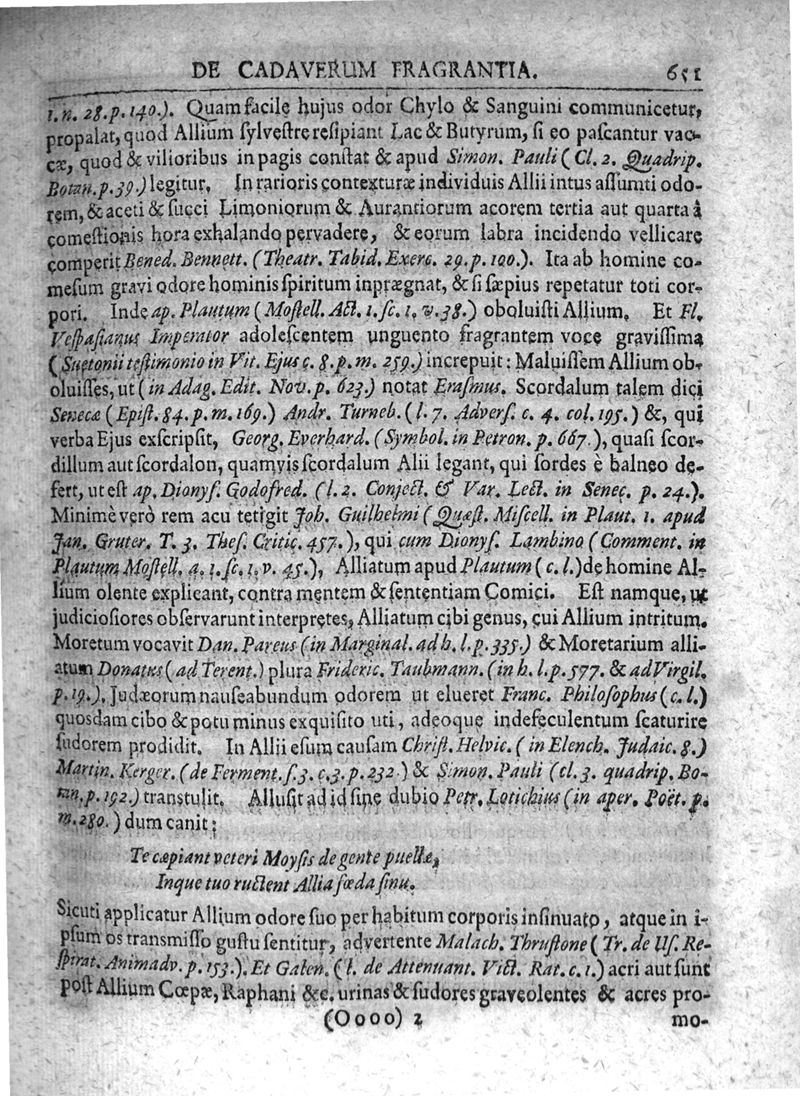 DE CADAVERUM FRAGRANTIA. 651
1. n. 28. p. 140.). Quam facile hujus odor Chylo & Sanguini communicetur,
propalat, quod Allium ſylveſtre reſipiant Lac & Butyrum, ſi eo paſcantur vac-
cæ, quod & vilioribus in pagis conſtat & apud Simon. Pauli (Cl. 2. Quadrip.
Botan. p. 39.) legitur. In rarioris contexturæ individuis Allii intus aſſumti odo-
rem, & aceti & ſucci Limoniorum & Aurantiorum acorem tertia aut quarta à
comeſtionis hora exhalando pervadere, & eorum labra incidendo vellicare
comperit Bened. Bennett. (Theatr. Tabid. Exerc. 29. p. 100.). Ita ab homine co-
meſum gravi odore hominis ſpiritum inprægnat, & ſi ſæpius repetatur toti cor-
pori. Inde ap. Plautum (Moſtell. Act. 1. ſc. 1. v. 38.) oboluiſti Allium. Et Fl.
Veſpaſianus Imperator adoleſcentem unguento fragrantem voce graviſſima
(Suetonii teſtimonio in Vit. Ejus c. 8. p. m. 259.) increpuit: Maluiſſem Allium ob-
oluiſſes, ut (in Adag. Edit. Nov. p. 623.) notat Eraſmus. Scordalum talem dici
Senecæ (Epiſt. 84. p. m. 169.) Andr. Turneb. (l. 7. Adverſ. c. 4. col. 195.) &, qui
verba Ejus exſcripſit, Georg. Everhard. (Symbol. in Petron. p. 667.), quaſi ſcor-
dillum aut ſcordalon, quamvis ſcordalum Alii legant, qui ſordes è balneo de-
fert, ut eſt ap. Dionyſ. Godofred. (l. 2. Conject. & Var. Lect. in Senec. p. 24.).
Minimè verò rem acu tetigit Joh. Guilhelmi (Quæſt. Miſcell. in Plaut. 1. apud
Jan. Gruter. T. 3. Theſ. Critic. 457.), qui cum Dionyſ. Lambino (Comment. in
Plautum Moſtell. a. 1. ſc. 1. v. 45.), Alliatum apud Plautum (c. l.) de homine Al-
lium olente explicant, contra mentem & ſententiam Comici. Eſt namque, ut
judicioſiores obſervarunt interpretes, Alliatum cibi genus, cui Allium intritum.
Moretum vocavit Dan. Pareus (in Marginal. ad h. l. p. 335.) & Moretarium alli-
atum Donatus (ad Terent.) plura Frideric. Taubmann. (in h. l. p. 577. & ad Virgil.
p. 19.). Judæorum nauſeabundum odorem ut elueret Franc. Philoſophus (c. l.)
quosdam cibo & potu minus exquiſito uti, adeoque indefeculentum ſcaturire
ſudorem prodidit. In Allii eſum cauſam Chriſt. Helvic. (in Elench. Judaic. 8.)
Martin. Kerger. (de Ferment. ſ. 3. c. 3. p. 232.) & Simon. Pauli (cl. 3. quadrip. Bo-
tan. p. 192.) transtulit. Alluſit ad id ſine dubio Petr. Lotichius (in aper. Poët. p.
m. 280.) dum canit:
Te capiant veteri Moyſis de gente puellæ,
Inque tuo ructent Allia fœda ſinu.
Sicuti applicatur Allium odore ſuo per habitum corporis inſinuato, atque in i-
pſum os transmiſſo guſtu ſentitur, advertente Malach. Thruſtone (Tr. de Uſ. Re-
ſpirat. Animadv. p. 153.). Et Galen. (l. de Attenuant. Vict. Rat. c. 1.) acri aut ſunt
poſt Allium Cœpæ, Raphani &c. urinas & ſudores graveolentes & acres pro-
(Oooo) 2 mo-